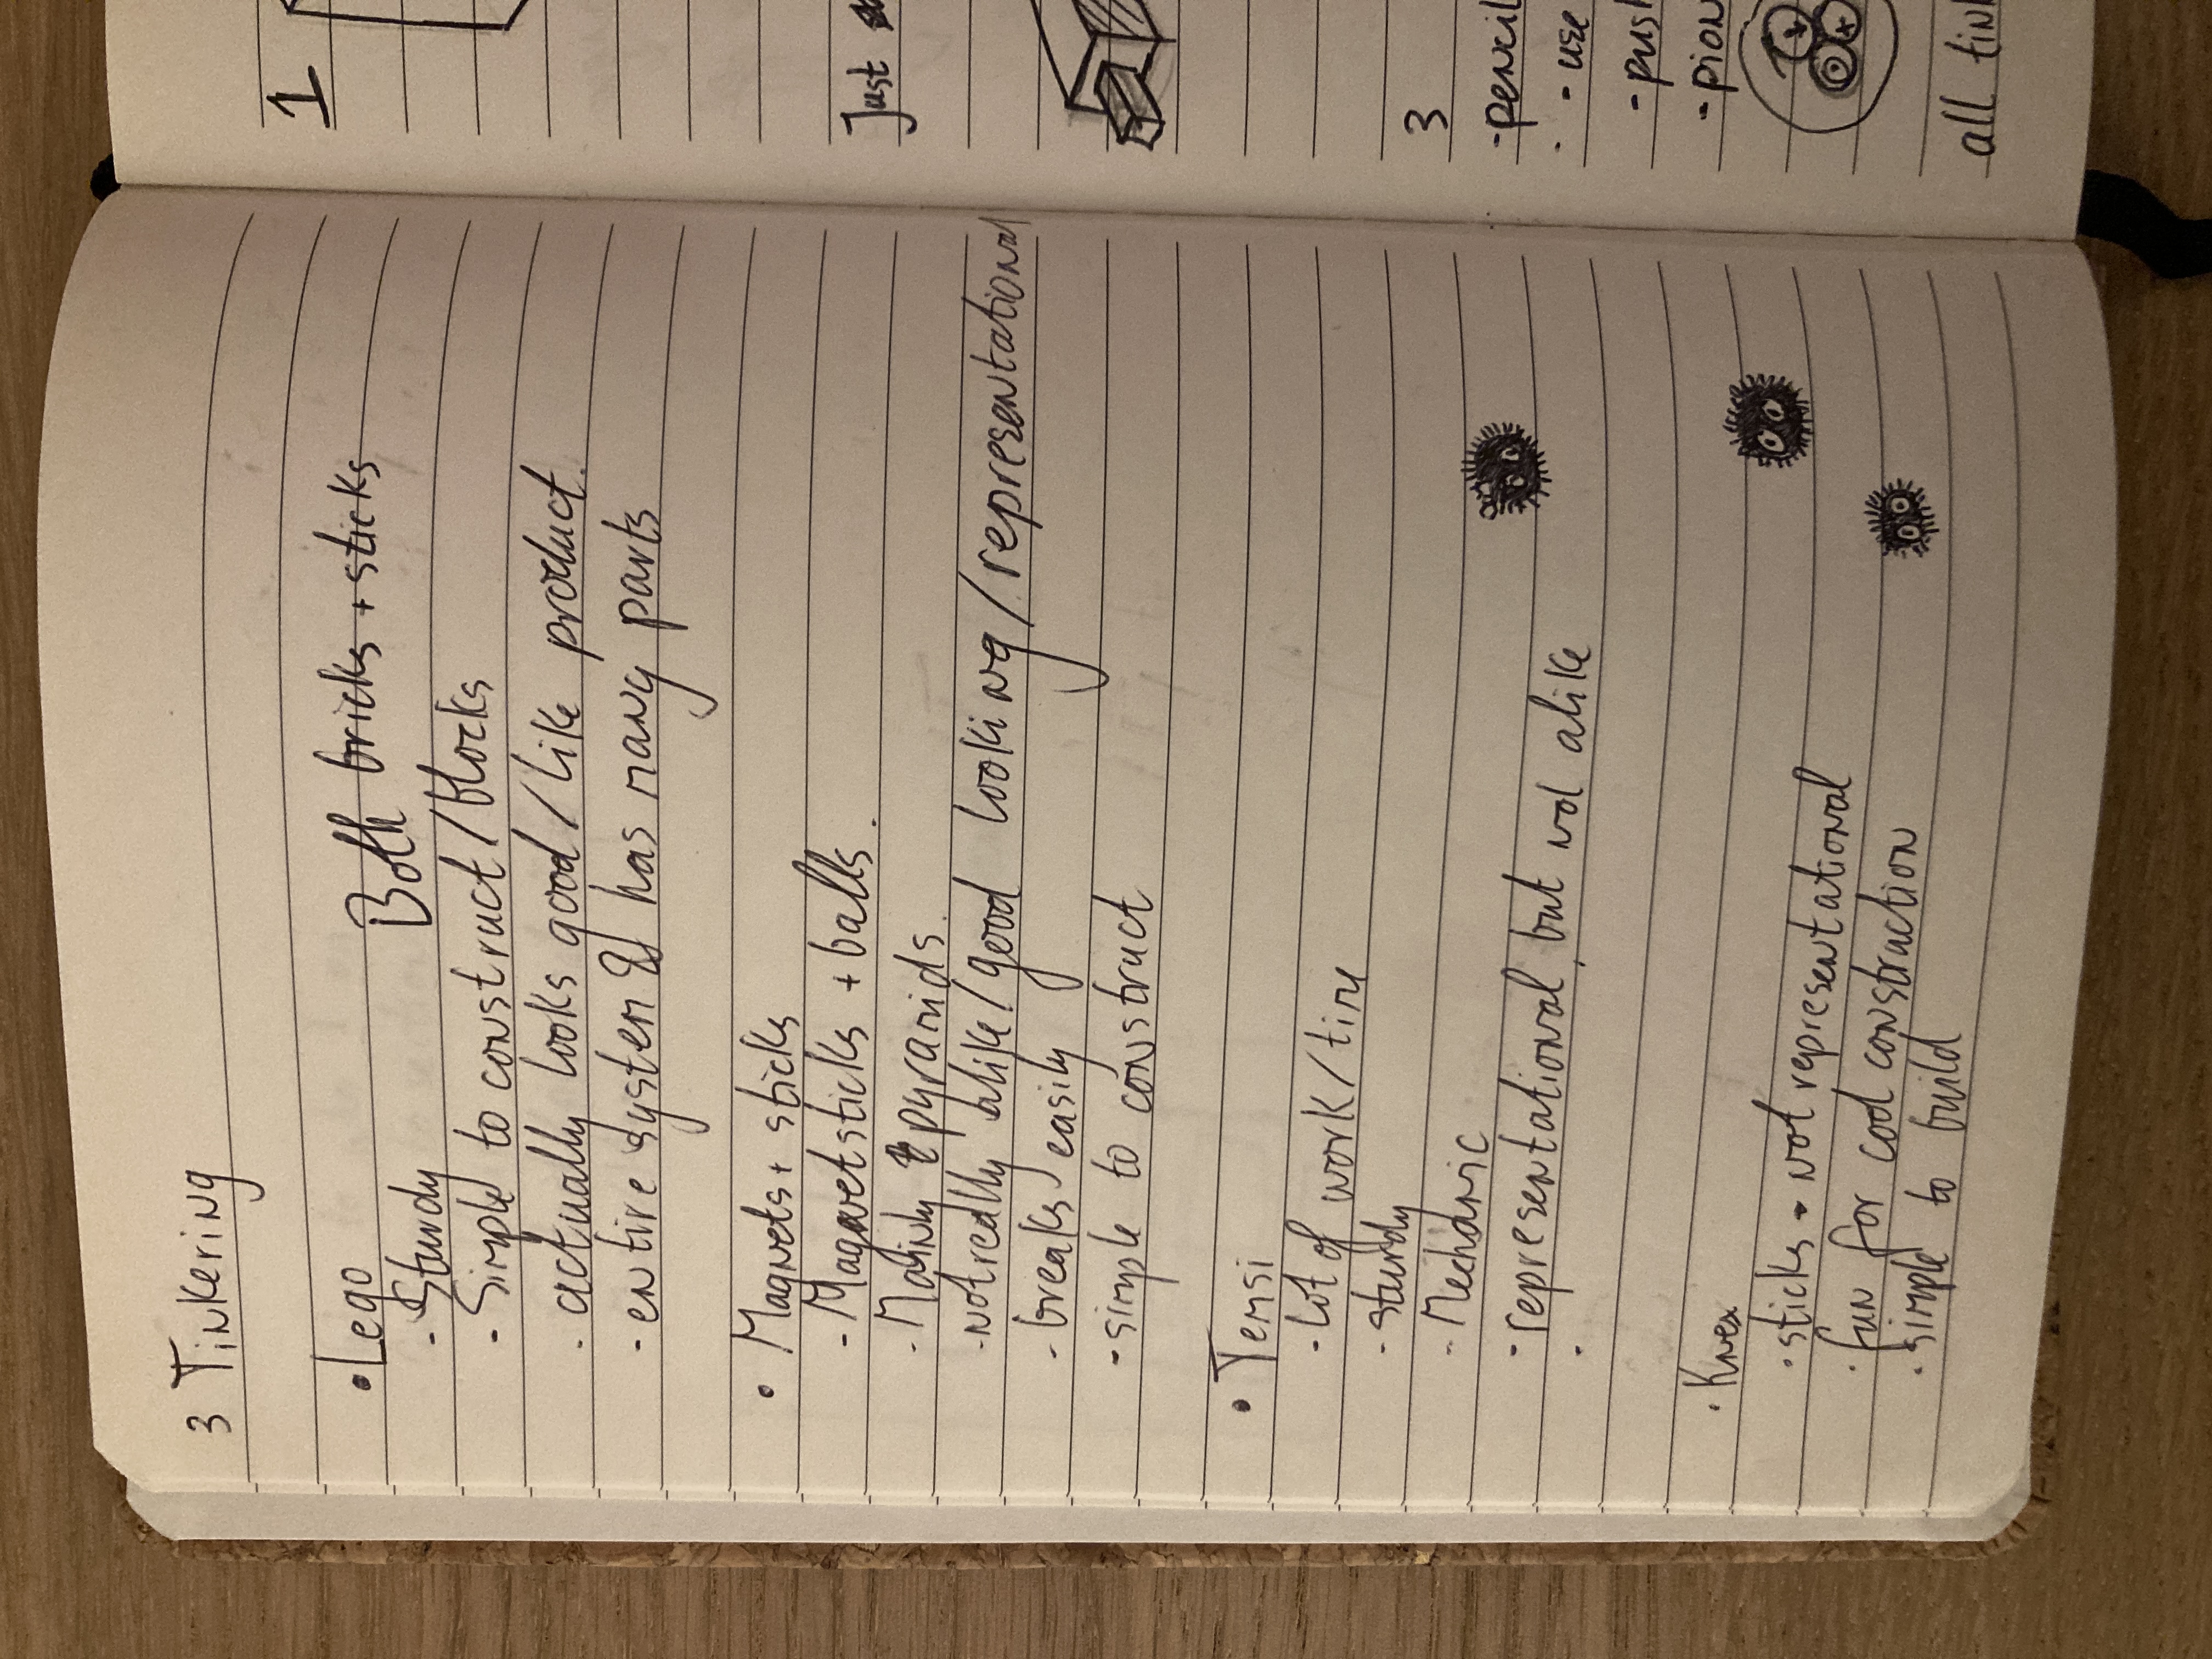 3 Tinkering
• Lego
Both bricks + sticks
- Sturdy
- Simple to construct / blocks
- actually looks good / like product.
- entire system & has many parts
• Magnets + sticks
- Magnetsticks + balls.
- Mainly pyramids.
- not really alike / good looking / representational
- breaks easily
- simple to construct
• Temsi
- Lot of work / time
- sturdy
- Mechanic
- representational, but not alike
-
• Knex
• sticks - not representational
• fun for cool construction
• simple to build
1
Just
3
- pencil
- use
- push
- pion
all tink